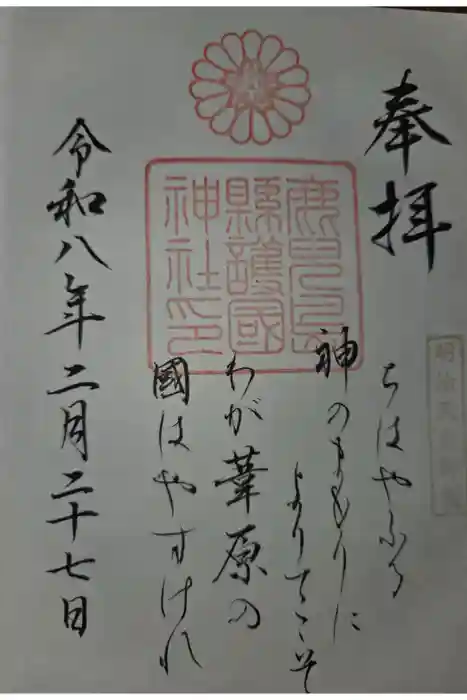 奉拝
明治天皇御製
ちはやふる
神のまもりに
よりてこそ
わが葦原の
國はやすけれ
鹿兒島
縣護國
神社印
令和八年二月二十七日